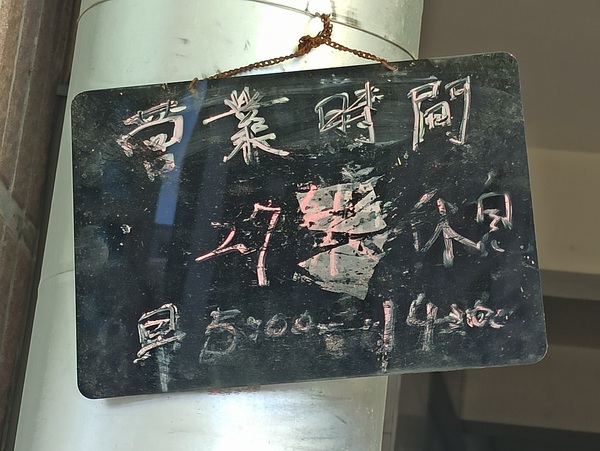 營業時間
休息
早5:00—14:00